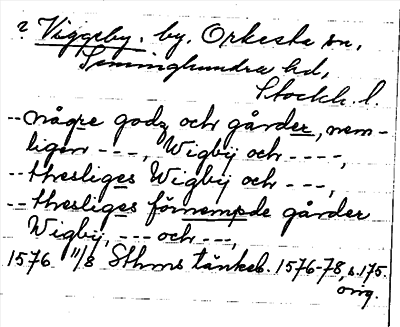 ? Viggeby. by. Orkesta sn,
Seminghundra hd,
Stockh. l.
-- någre godz och gårder, nem-
ligen ---, Wigbÿ och ----,
-- thesliges Wigbÿ och ---,
-- thesliges förnempde gårder
Wigbÿ, --- och ---,
1576 11/8 Sthms tänkeb. 1576-78, s. 175.
orig.